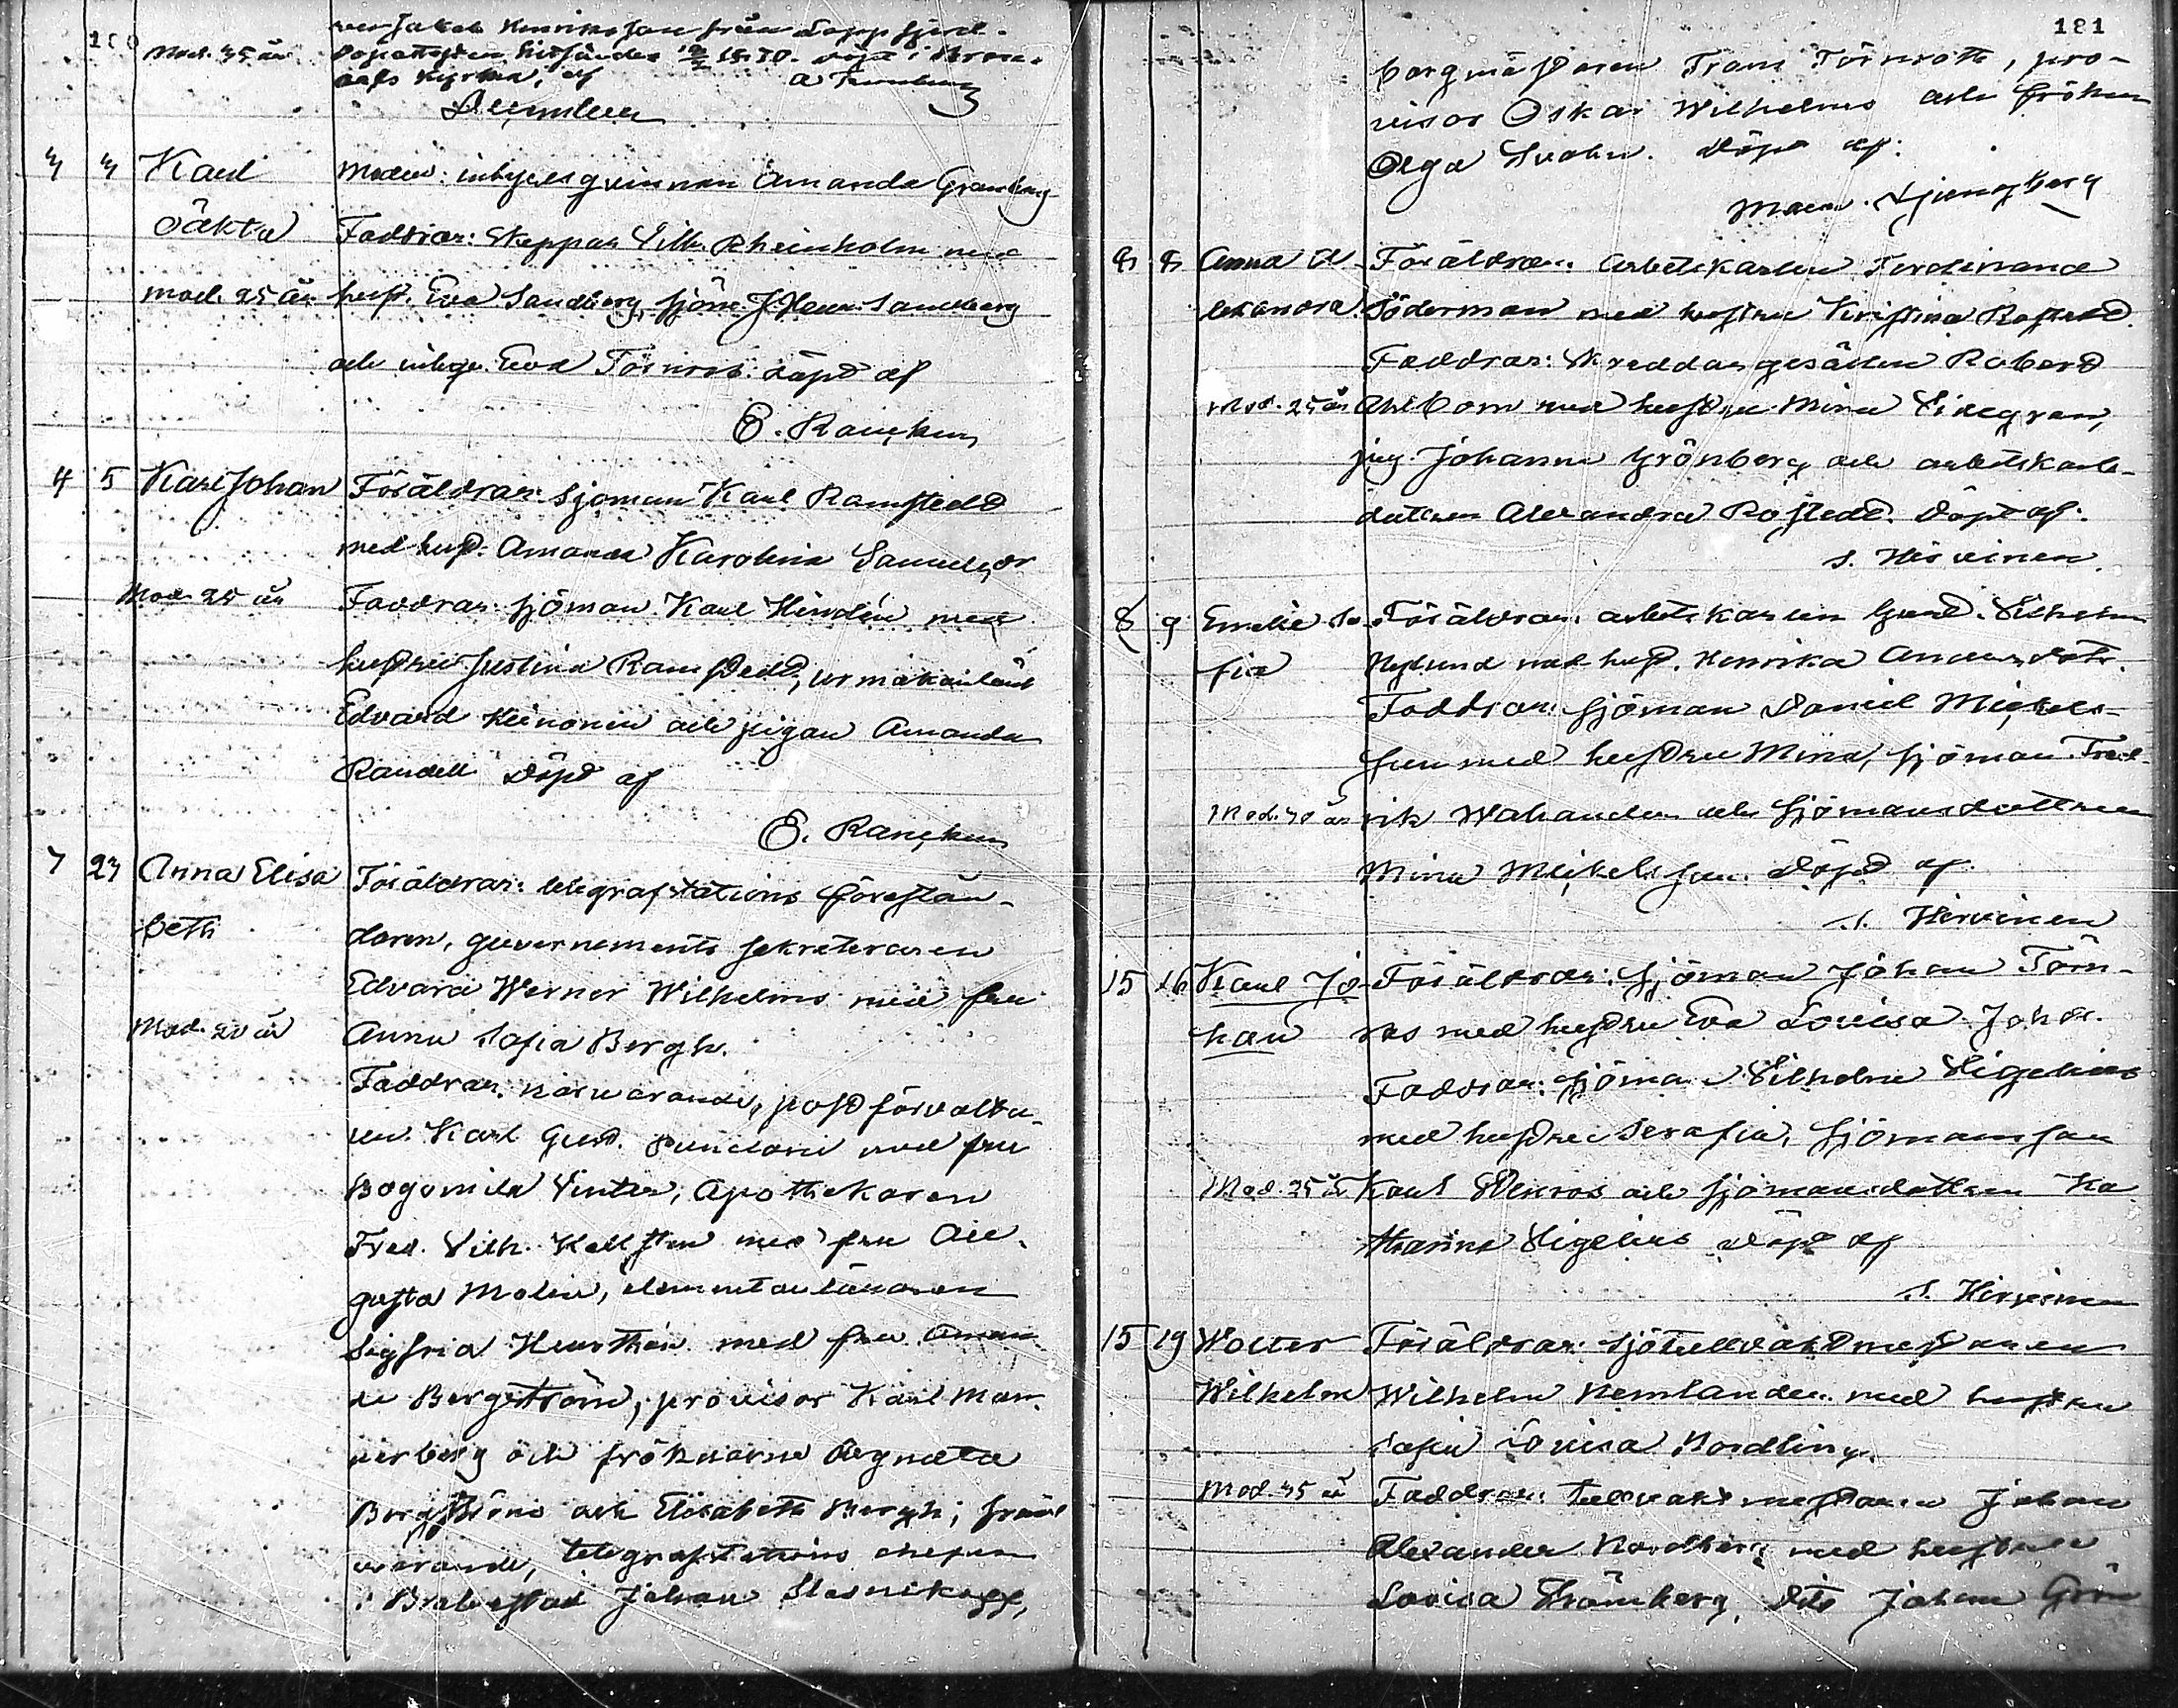 180
Mod. 35 år
Döpt i
kyrka, af
3 3 Karl
Oäkta
mod. 25 år
Moder: inhyses qvinnan Amanda Granberg
Faddrar: Skeppar Vilh. Rheinholm med
hust. Eva Sandberg, sjöm. J. Henr. Sandberg
och inhys. Eva Törnros. Döpt af
E. Rancken
4 5 Karl Johan
Mod. 25 år
Föräldrar: Sjöman Karl Ramstedt
med hust. Amanda Karolina Samuelsdr
Faddrar: sjöman Karl med
hustru Justina Ramstedt, urmakarlärl
Edvard Keinonen och pigan Amanda
Randell Döpt af
E. Rancken
7 23 Anna Elisa
beth
Mod. 20 år
Föräldrar: telegrafstations förestån-
daren, guvernements sekreteraren
Edvard Werner Wilhelms med fru
Anna Sofia Bergh.
Faddrar: närvarande, postförvalta-
ren Karl Gust. med fru
Bogomila Winter, Apothekaren
Fred. Vilh. Kellsten med fru Au-
gusta Molin, elementarläraren
Sigfrid med fru Aman-
da Bergström, provisor Karl Man-
nerberg och fröknarne Agneta
Bergström och Elisabeth Bergh; från-
varande, telegrafstations chefen
i Brahestad Johan
181
borgmästaren Frans Törnroth, pro-
visor Oskar Wilhelms och fröken
Olga Svahn. Döpt af:
Ljungberg
8 8 Anna A-
lexandra
Mod. 25 år
Föräldrar: arbetskarlen Ferdinand
Söderman med hustru Kristina Rostedt.
Faddrar: Skreddargesällen Robert
Ahlbom med hustru Mina Lindgren,
pig. Johanna Grönberg och arbetskarls-
dottren Alexandra Rostedt. Döpt af:
S. Hirvinen.
8 9 Emelie So-
fia
Mod. 40 år
Föräldrar: arbetskarlen Gust. Vilhelm
Nylund med hust. Henrika Andersdotr.
Faddrar: sjöman Daniel Mickels-
son med hustru Mina, sjöman Fred-
rik Wahander och sjömansdottren
Mina Mickelsson. Döpt af
S. Hirvinen
15 16 Karl Jo-
han
Mod. 25 år
Föräldrar: sjöman Johan Törn-
ros med hustru Eva Lovisa Johdr.
Faddrar: sjöman Vilhelm Sigelius
med hustru Serafia, sjömansson
Karl och sjömansdottren Ka
tharina Sigelius Döpt af
S. Hirvinen
15 19 Wolter
Wilhelm
Mod. 35 år
Föräldrar: sjötullvaktmästaren
Wilhelm Nemlander med hustru
Sofia Lovisa Nordling.
Faddrar: tullvaktmästaren Johan
Alexander Nordberg med hustru
Lovisa Strömberg, dito Johan Grön